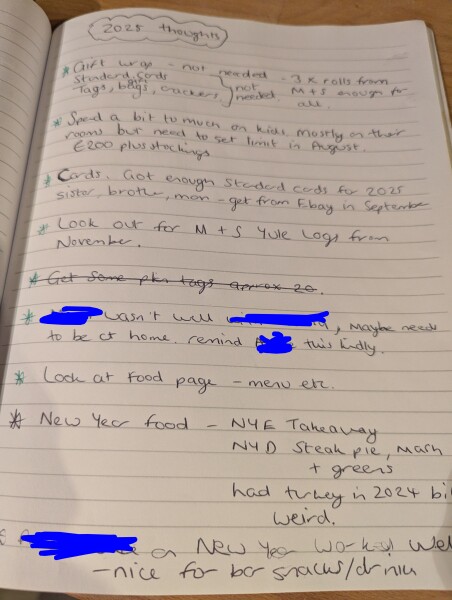 2025 thoughts
* Gift wrap - not needed - 3 x rolls from
Standard cards
Tags, bags, crackers } not needed M + S enough for
all.
* Spend a bit to much on kids, mostly on their
rooms but need to set limit in August.
£200 plus stockings
* Cards. Got enough standard cards for 2025
sister, brother, mam - get from Ebay in September
* Look out for M + S Yule Logs from
November.
* Get some pkn tags approx 20.
* wasn't well , maybe need
to be at home. remind this kindly.
* Look at food page - menu etc.
* New Year food - NYE Takeaway
NYD Steak pie, mash
+ greens
had turkey in 2024 bit
weird.
on New Year worked well
- nice for bar snacks/drink